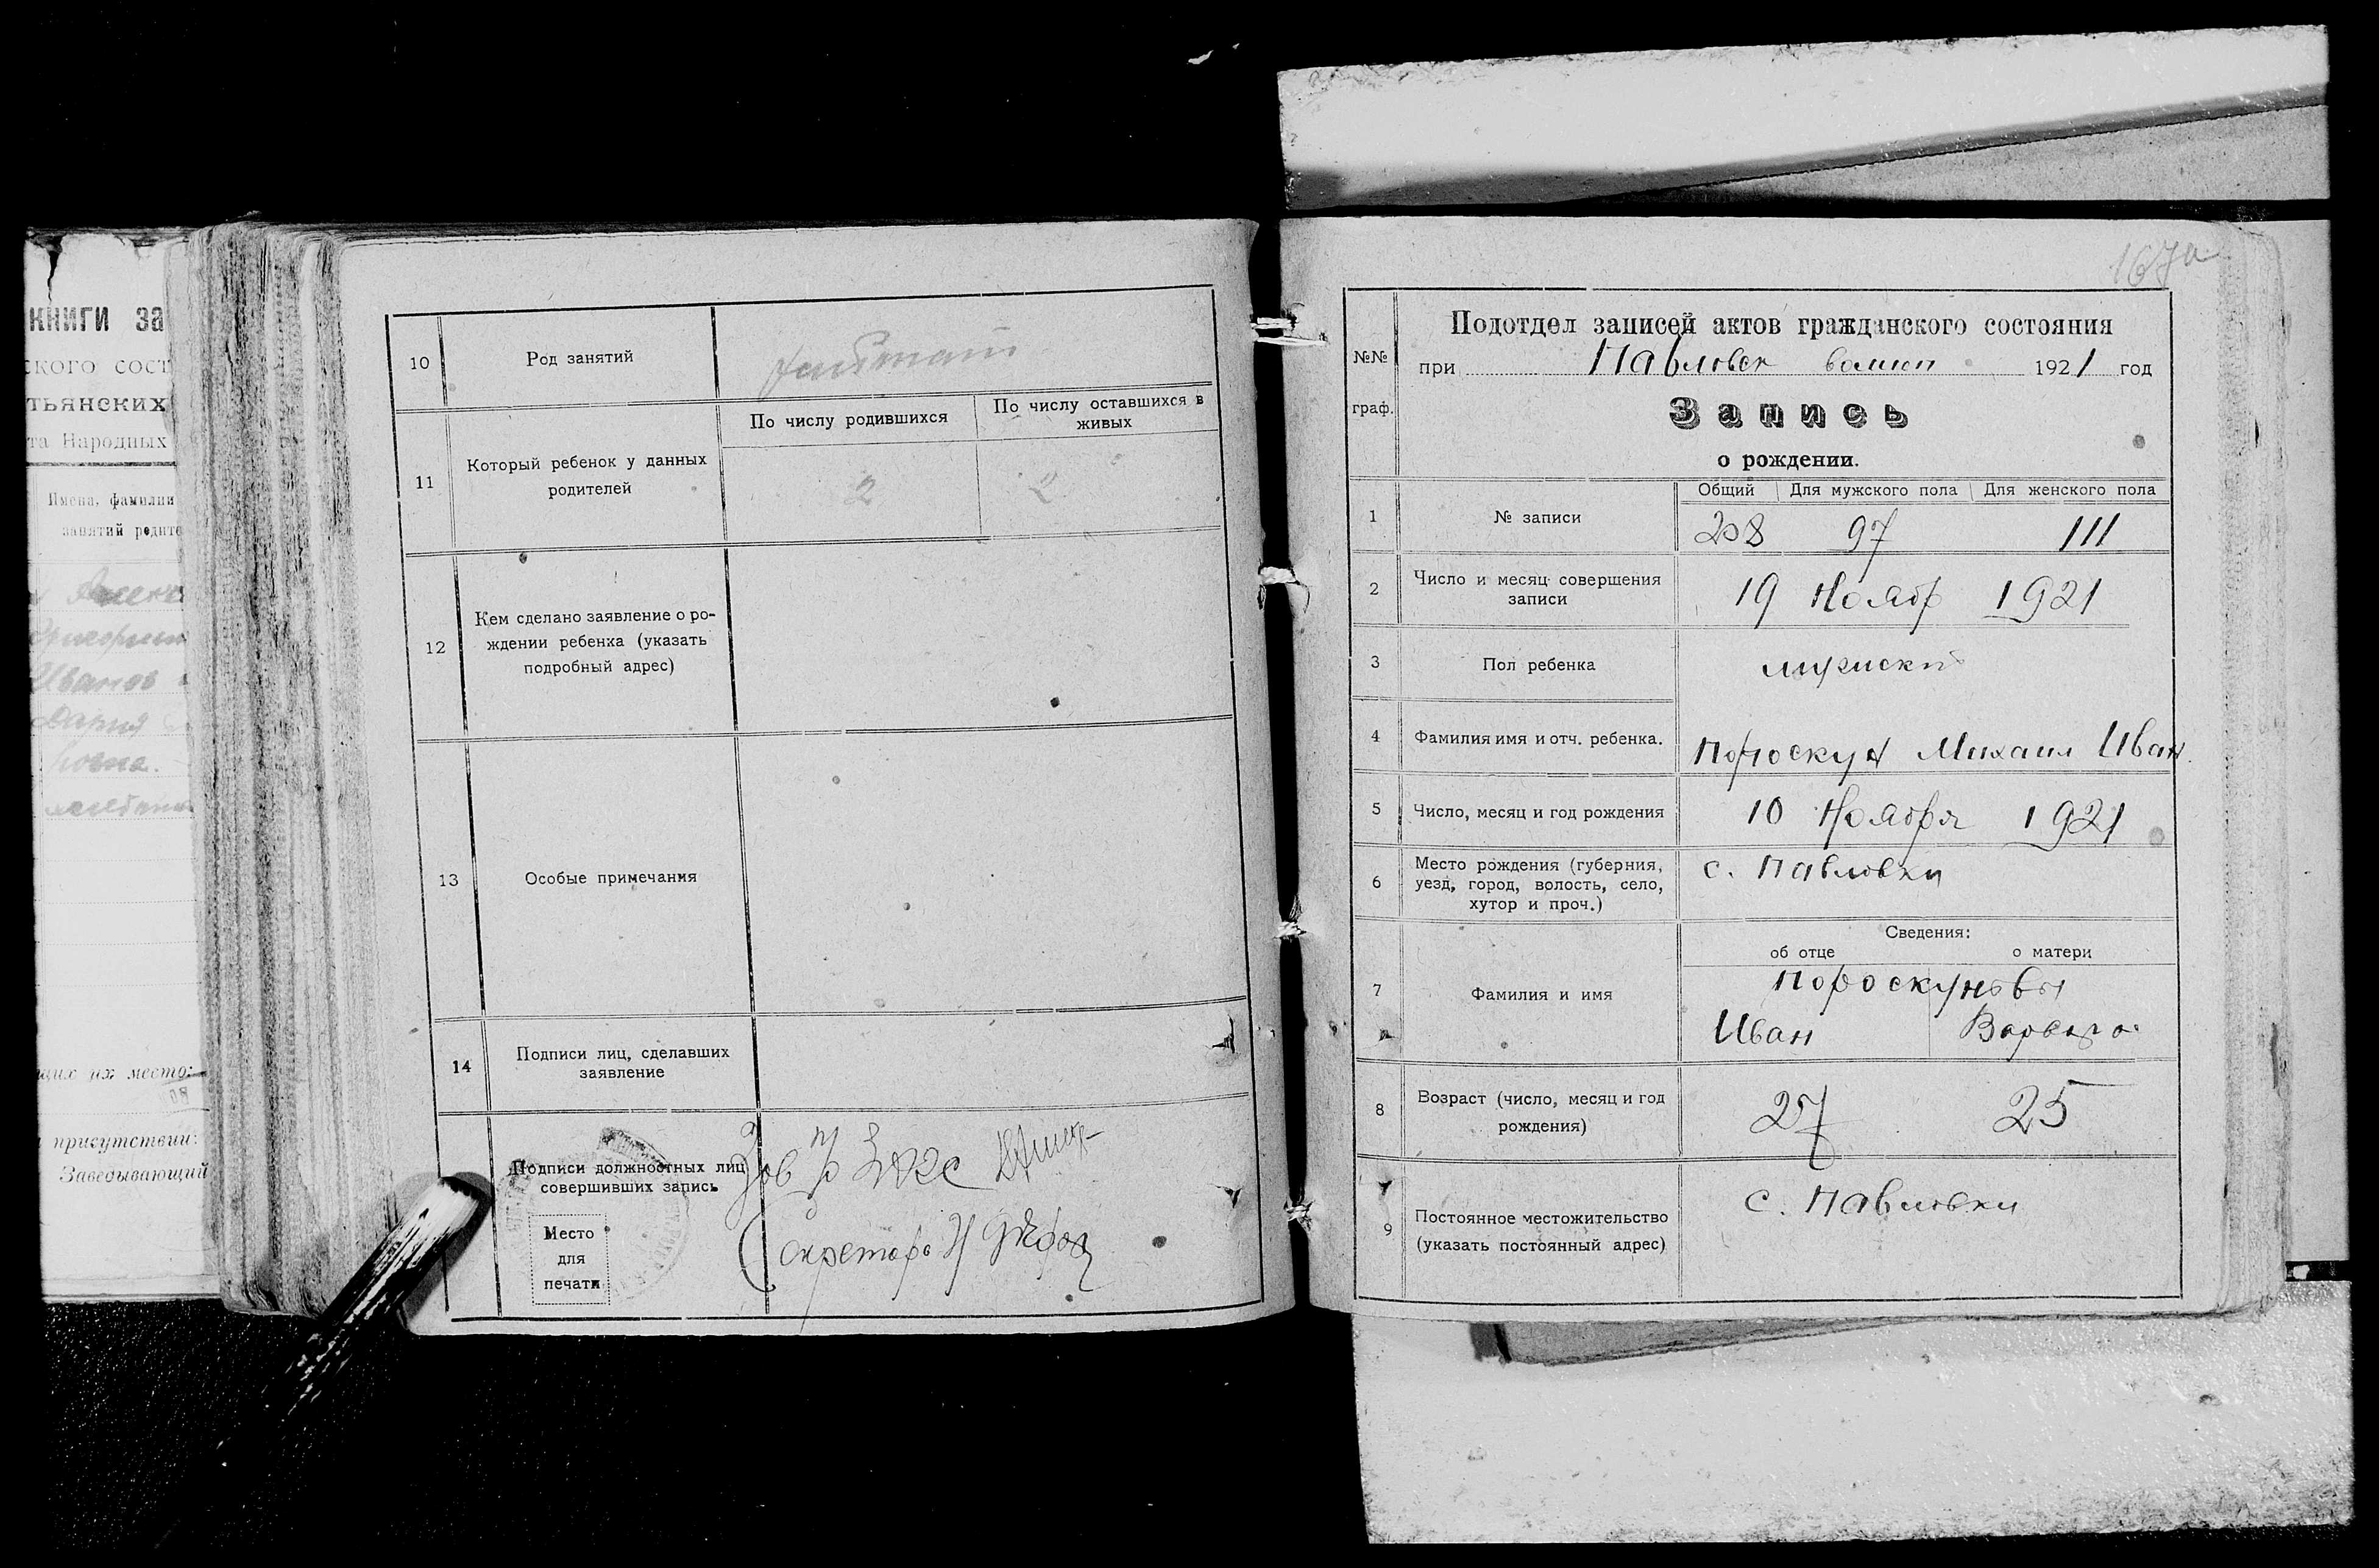 книги за
ского сост
тьянских
та Народных
Имена, фамилии
занятий родите
Иванов
Дария
щих их место:
присутствии:
Заведывающий
10
Род занятий
11
Который ребенок у данных
родителей
По числу родившихся
По числу оставшихся в
живых
2
2
12
Кем сделано заявление о ро-
ждении ребенка (указать
подробный адрес)
13
Особые примечания
14
Подписи лиц, сделавших
заявление
Подписи должностных лиц
совершивших запись
Зав
Секретарь
Место
для
печати
167а
№№
граф.
Подотдел записей актов гражданского состояния
при Павловск волисп 1921 год
Запись
о рождении.
1
№ записи
Общий
Для мужского пола
Для женского пола
208
97
111
2
Число и месяц совершения
записи
19 Нояб 1921
3
Пол ребенка
мужский
4
Фамилия имя и отч. ребенка.
Пороскун Михаил Иван.
5
Число, месяц и год рождения
10 Ноября 1921
6
Место рождения (губерния,
уезд, город, волость, село,
хутор и проч.)
с. Павловки
7
Фамилия и имя
Сведения:
об отце
о матери
Пороскуновы
Иван
Варвара
8
Возраст (число, месяц и год
рождения)
27
25
9
Постоянное местожительство
(указать постоянный адрес)
с. Павловки